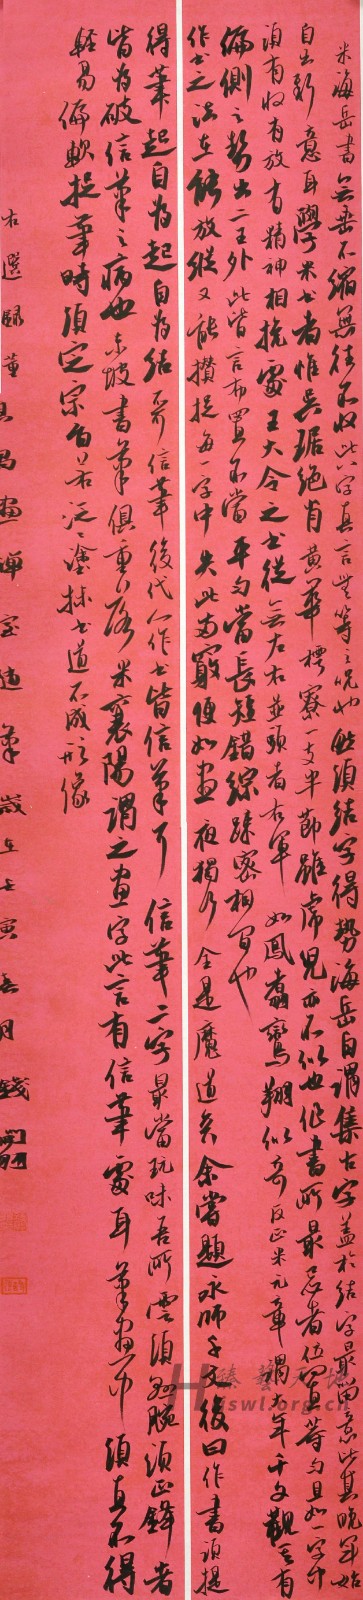 米海岳書無垂不縮無往不收此八字真言無等等之咒也然須結字得勢海岳自謂集古字蓋於結字最留意比其晚年始
自出新意耳學米書者惟吳琚絕肖黃華樗寮一支半節雖虎兒亦不似也作書所最忌者位置等匀且如一字中
須有收有放有精神相挽處王大令之書從無左右並頭者右軍如鳳翥鸞翔似奇反正米元章謂大年千文觀其有
偏側之勢出二王外此皆言布置不當平匀當長短錯綜疎密相間也
作書之法在能放縱又能攢捉每一字中失此兩竅便如晝夜獨行全是魔道矣余嘗題永師千文後曰作書須提
得筆起自為起自為結不可信筆後代人作書皆信筆耳信筆二字最當玩味吾所雲須懸腕須正鋒者
皆為破信筆之病也東坡書筆俱重落米襄陽謂之畫字此言有信筆處耳筆畫中須直不得
輕易偏軟捉筆時須定宗旨若泛泛塗抹書道不成形像
右選録董其昌畫禪室随筆歲在壬寅春月錢
臻藝天地
jswl.org.cn